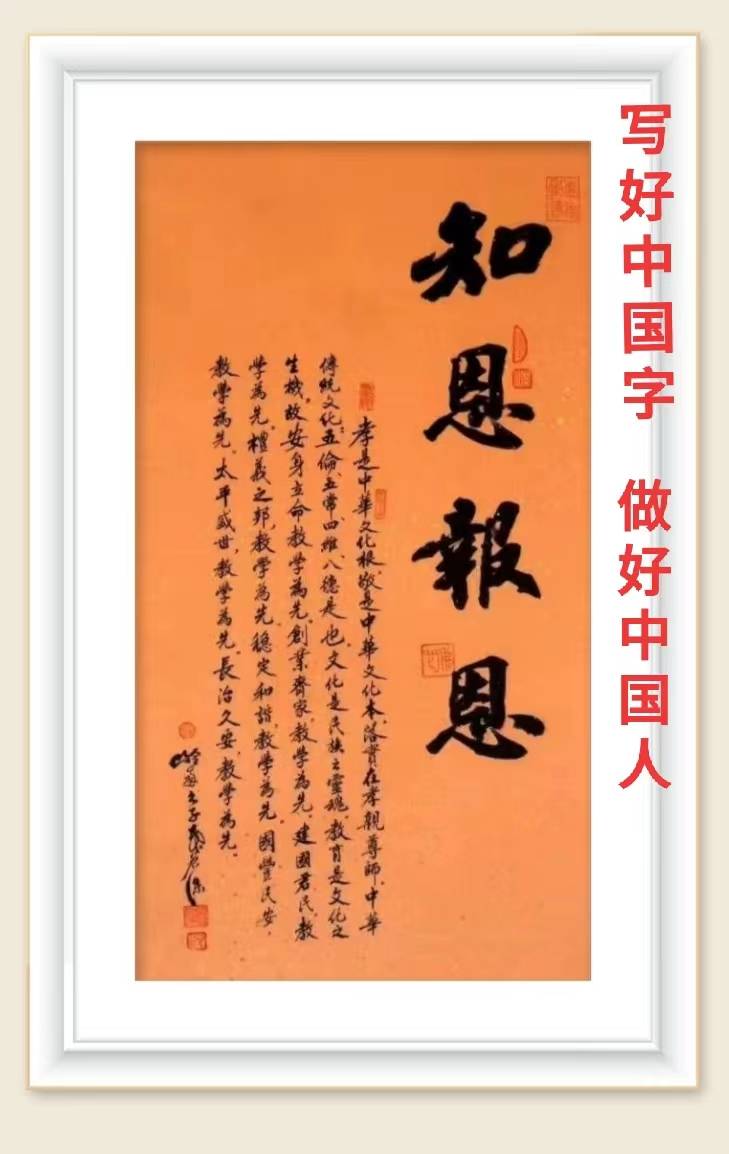 写好中国字 做好中国人
知恩報恩
孝是中華文化根,敬是中華文化本,落實在孝親尊師。中華
傳統文化:五倫、五常、四維、八德是也。文化是民族之靈魂,教育是文化之
生機。故安身立命,教學為先。創業齊家,教學為先。建國君民,教
學為先。禮義之邦,教學為先。穩定和諧,教學為先。國豐民安,
教學為先。太平盛世,教學為先。長治久安,教學為先。